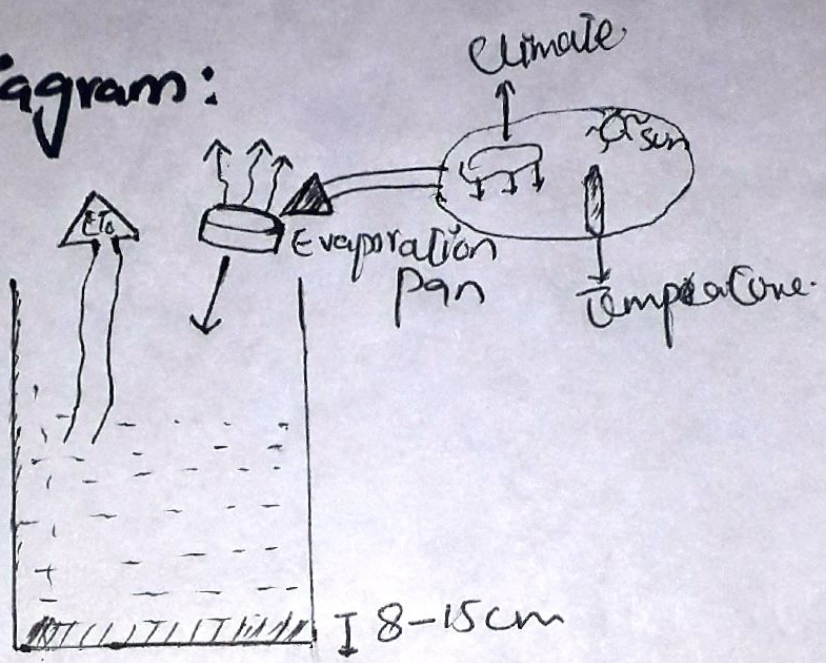 agram:
Climate
Sun
ETo
Evaporation
Pan
Temperature.
8-15cm